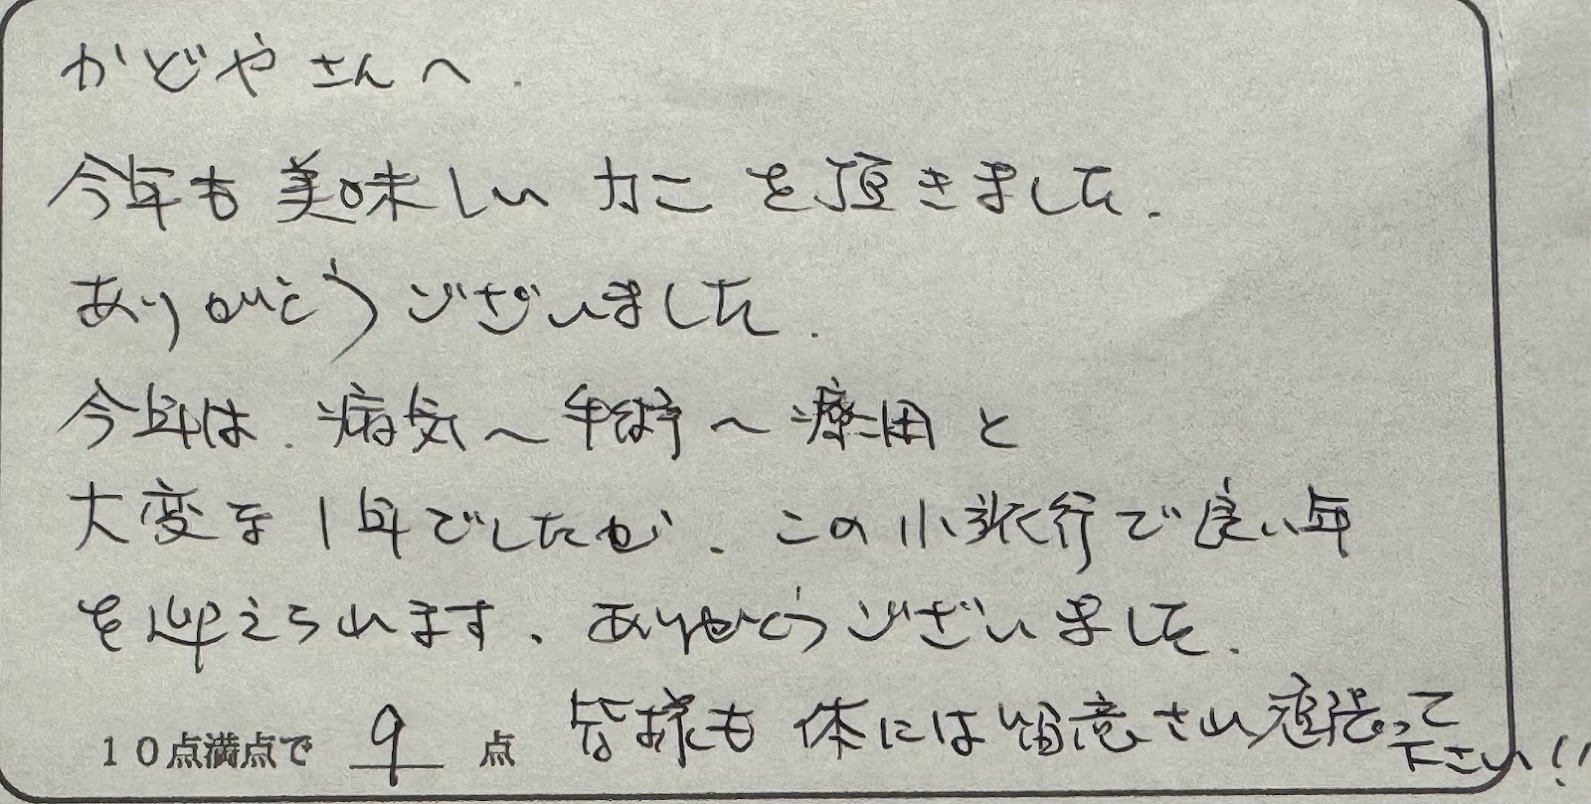 かどやさんへ.
今年も美味しいカニを頂きました.
ありがとうございました.
今年は、病気～手術～療用と
大変な1年でしたが、この小旅行で良い年
を迎えられます、ありがとうございました.
10点満点で 9 点 皆様も体には留意され頑張って
下さい!!